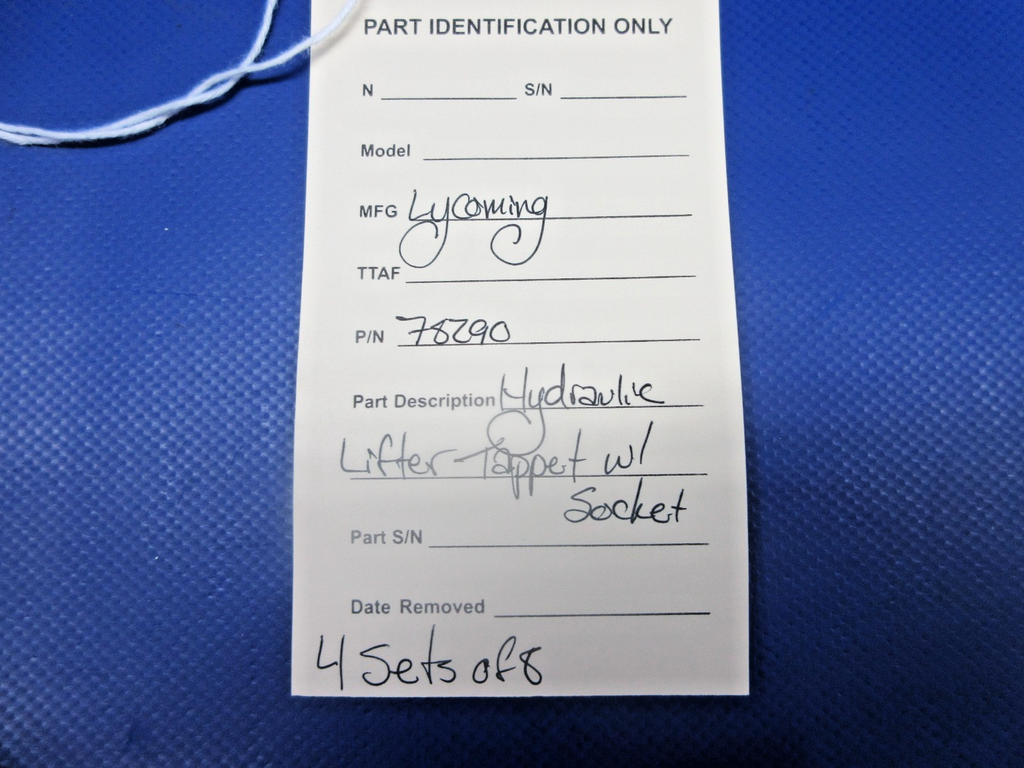 PART IDENTIFICATION ONLY
N S/N
Model
MFG Lycoming
TTAF
P/N 78290
Part Description Hydraulic
Lifter-Tappet w/
Socket
Part S/N
Date Removed
4 Sets of 8